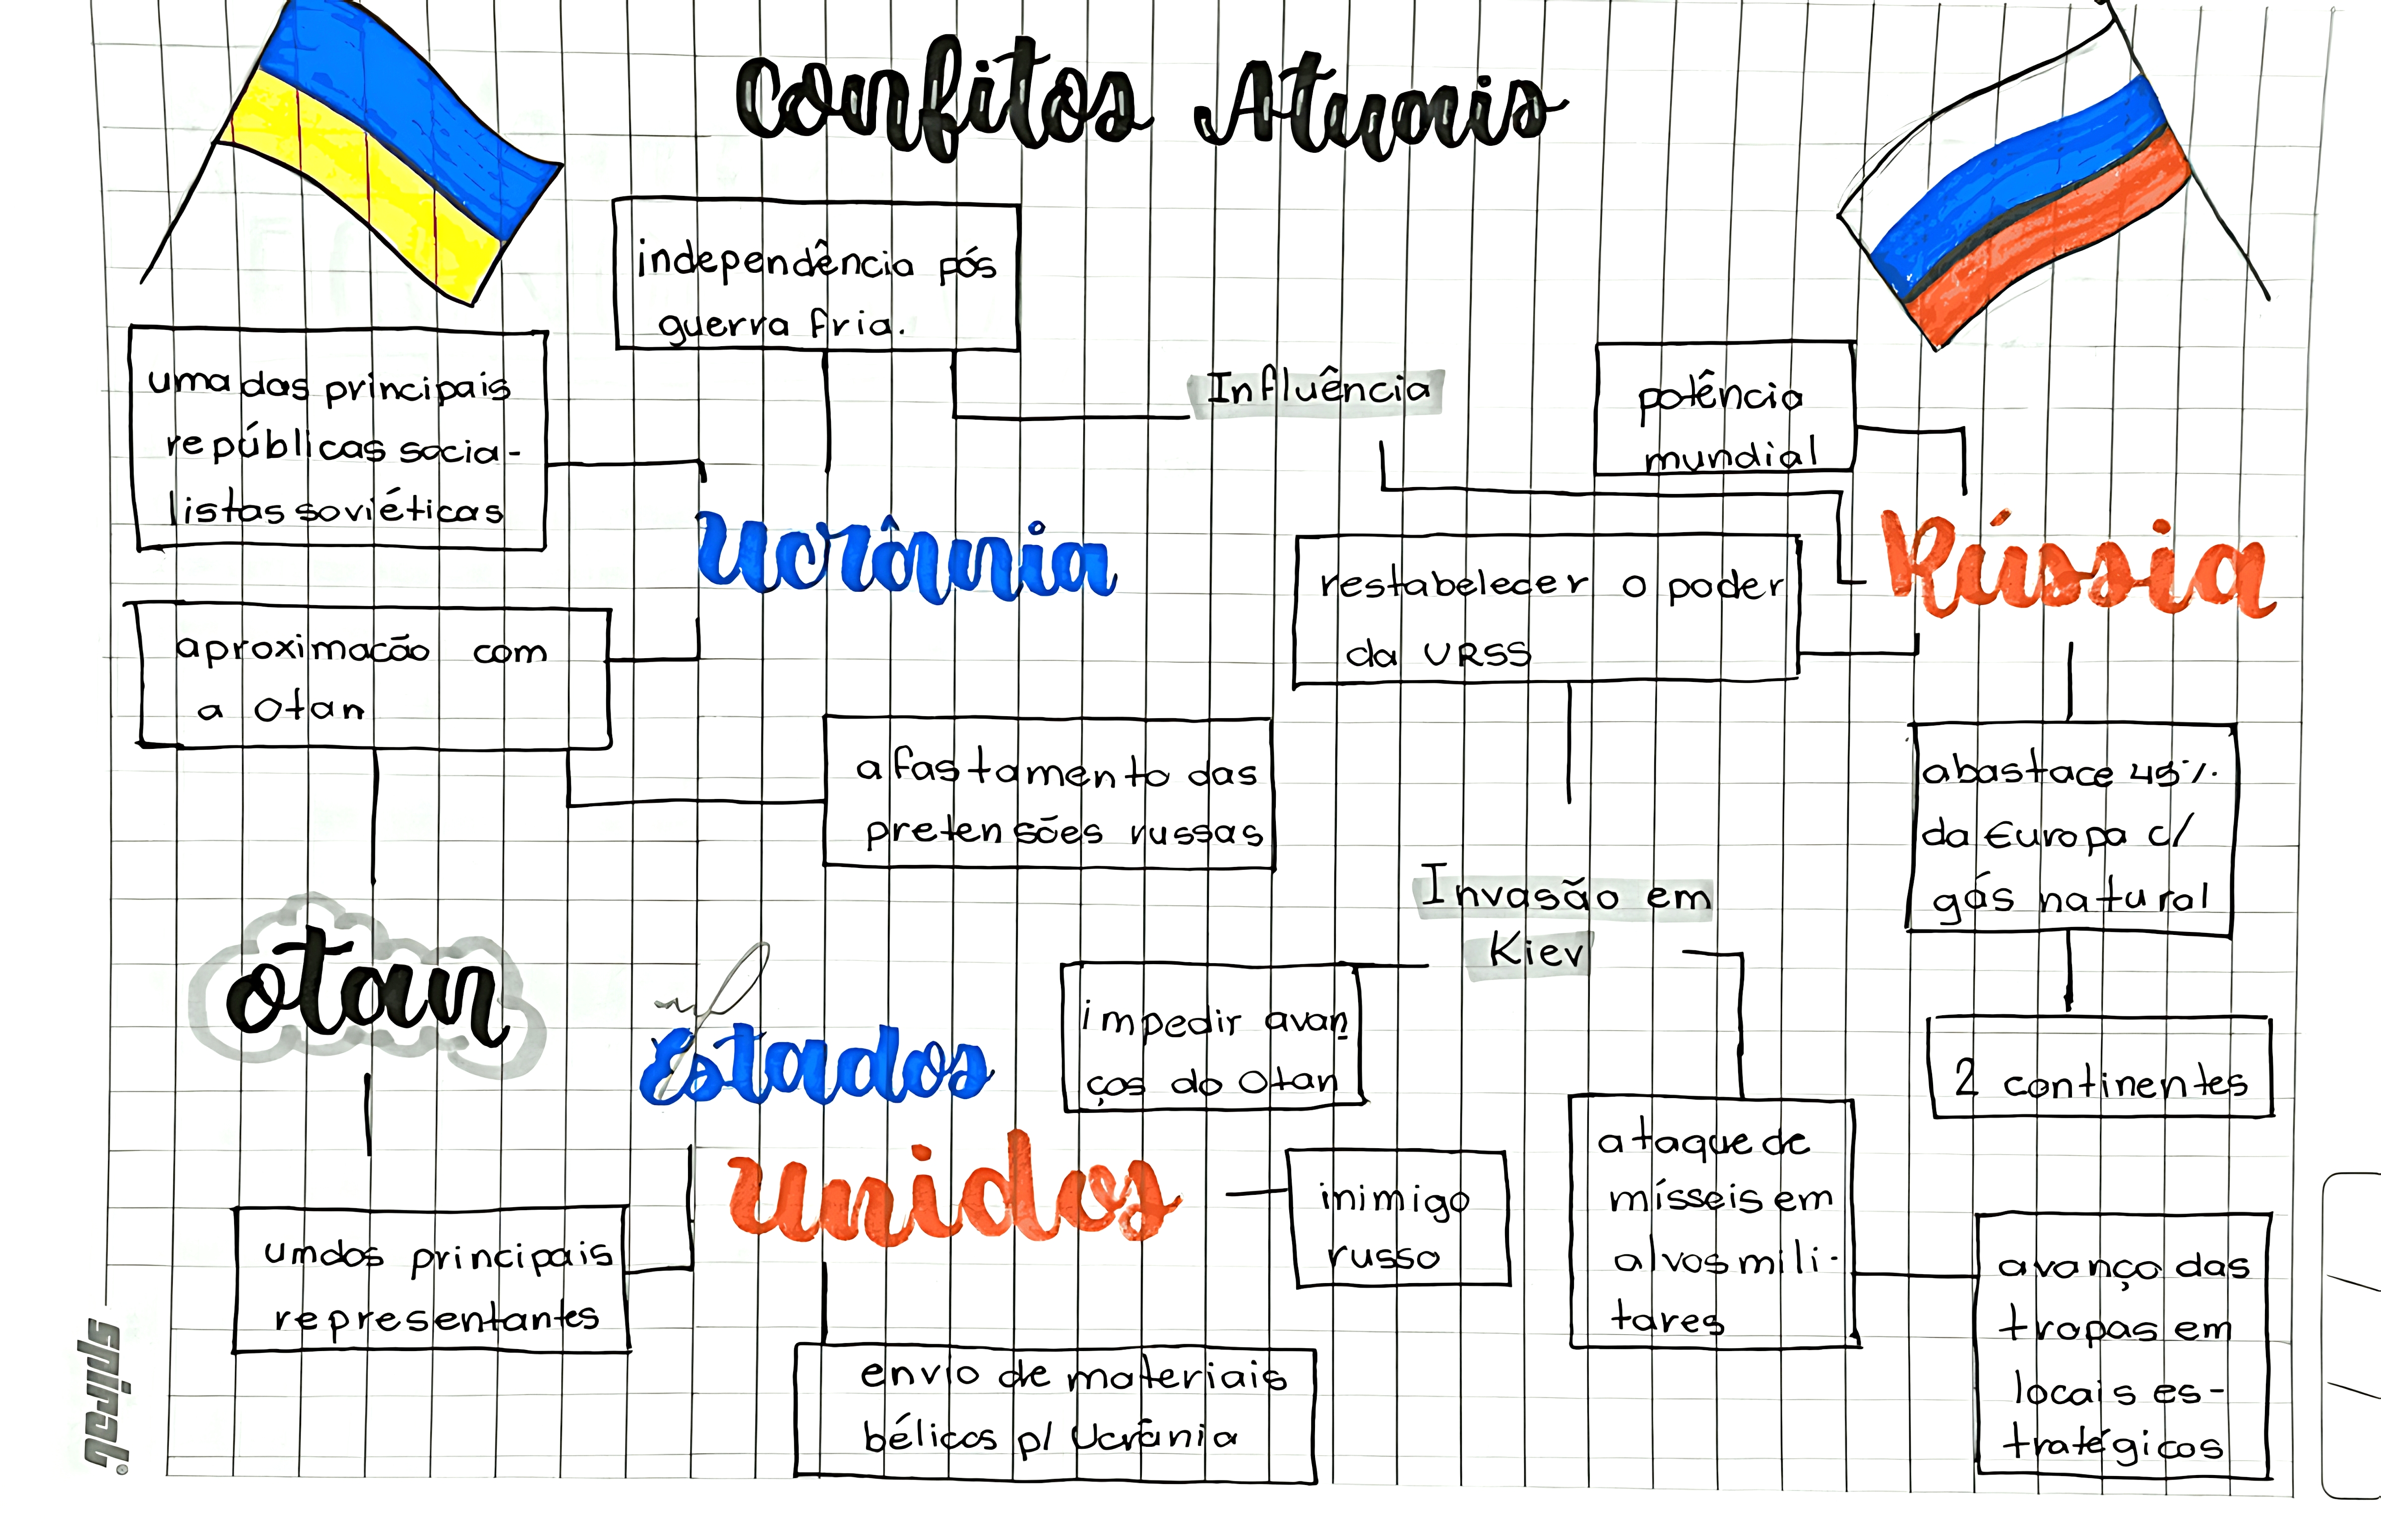 Confitos Atuais
independência pós
guerra fria.
uma das principais
repúblicas socia-
listas soviéticas
Influência
potência
mundial
Ucrânia
Rússia
restabelecer o poder
da URSS
aproximacão com
a Otan
afastamento das
pretensões russas
abastace 45%.
da Europa c/
gás natural
Invasão em
Kiev
otan
Estados
Unidos
impedir avan
ços do Otan
2 continentes
ataque de
mísseis em
alvos mili-
tares
inimigo
russo
um dos principais
representantes
avanço das
tropas em
locais es-
tratégicos
envio de materiais
bélicos p/ Ucrânia
spiral